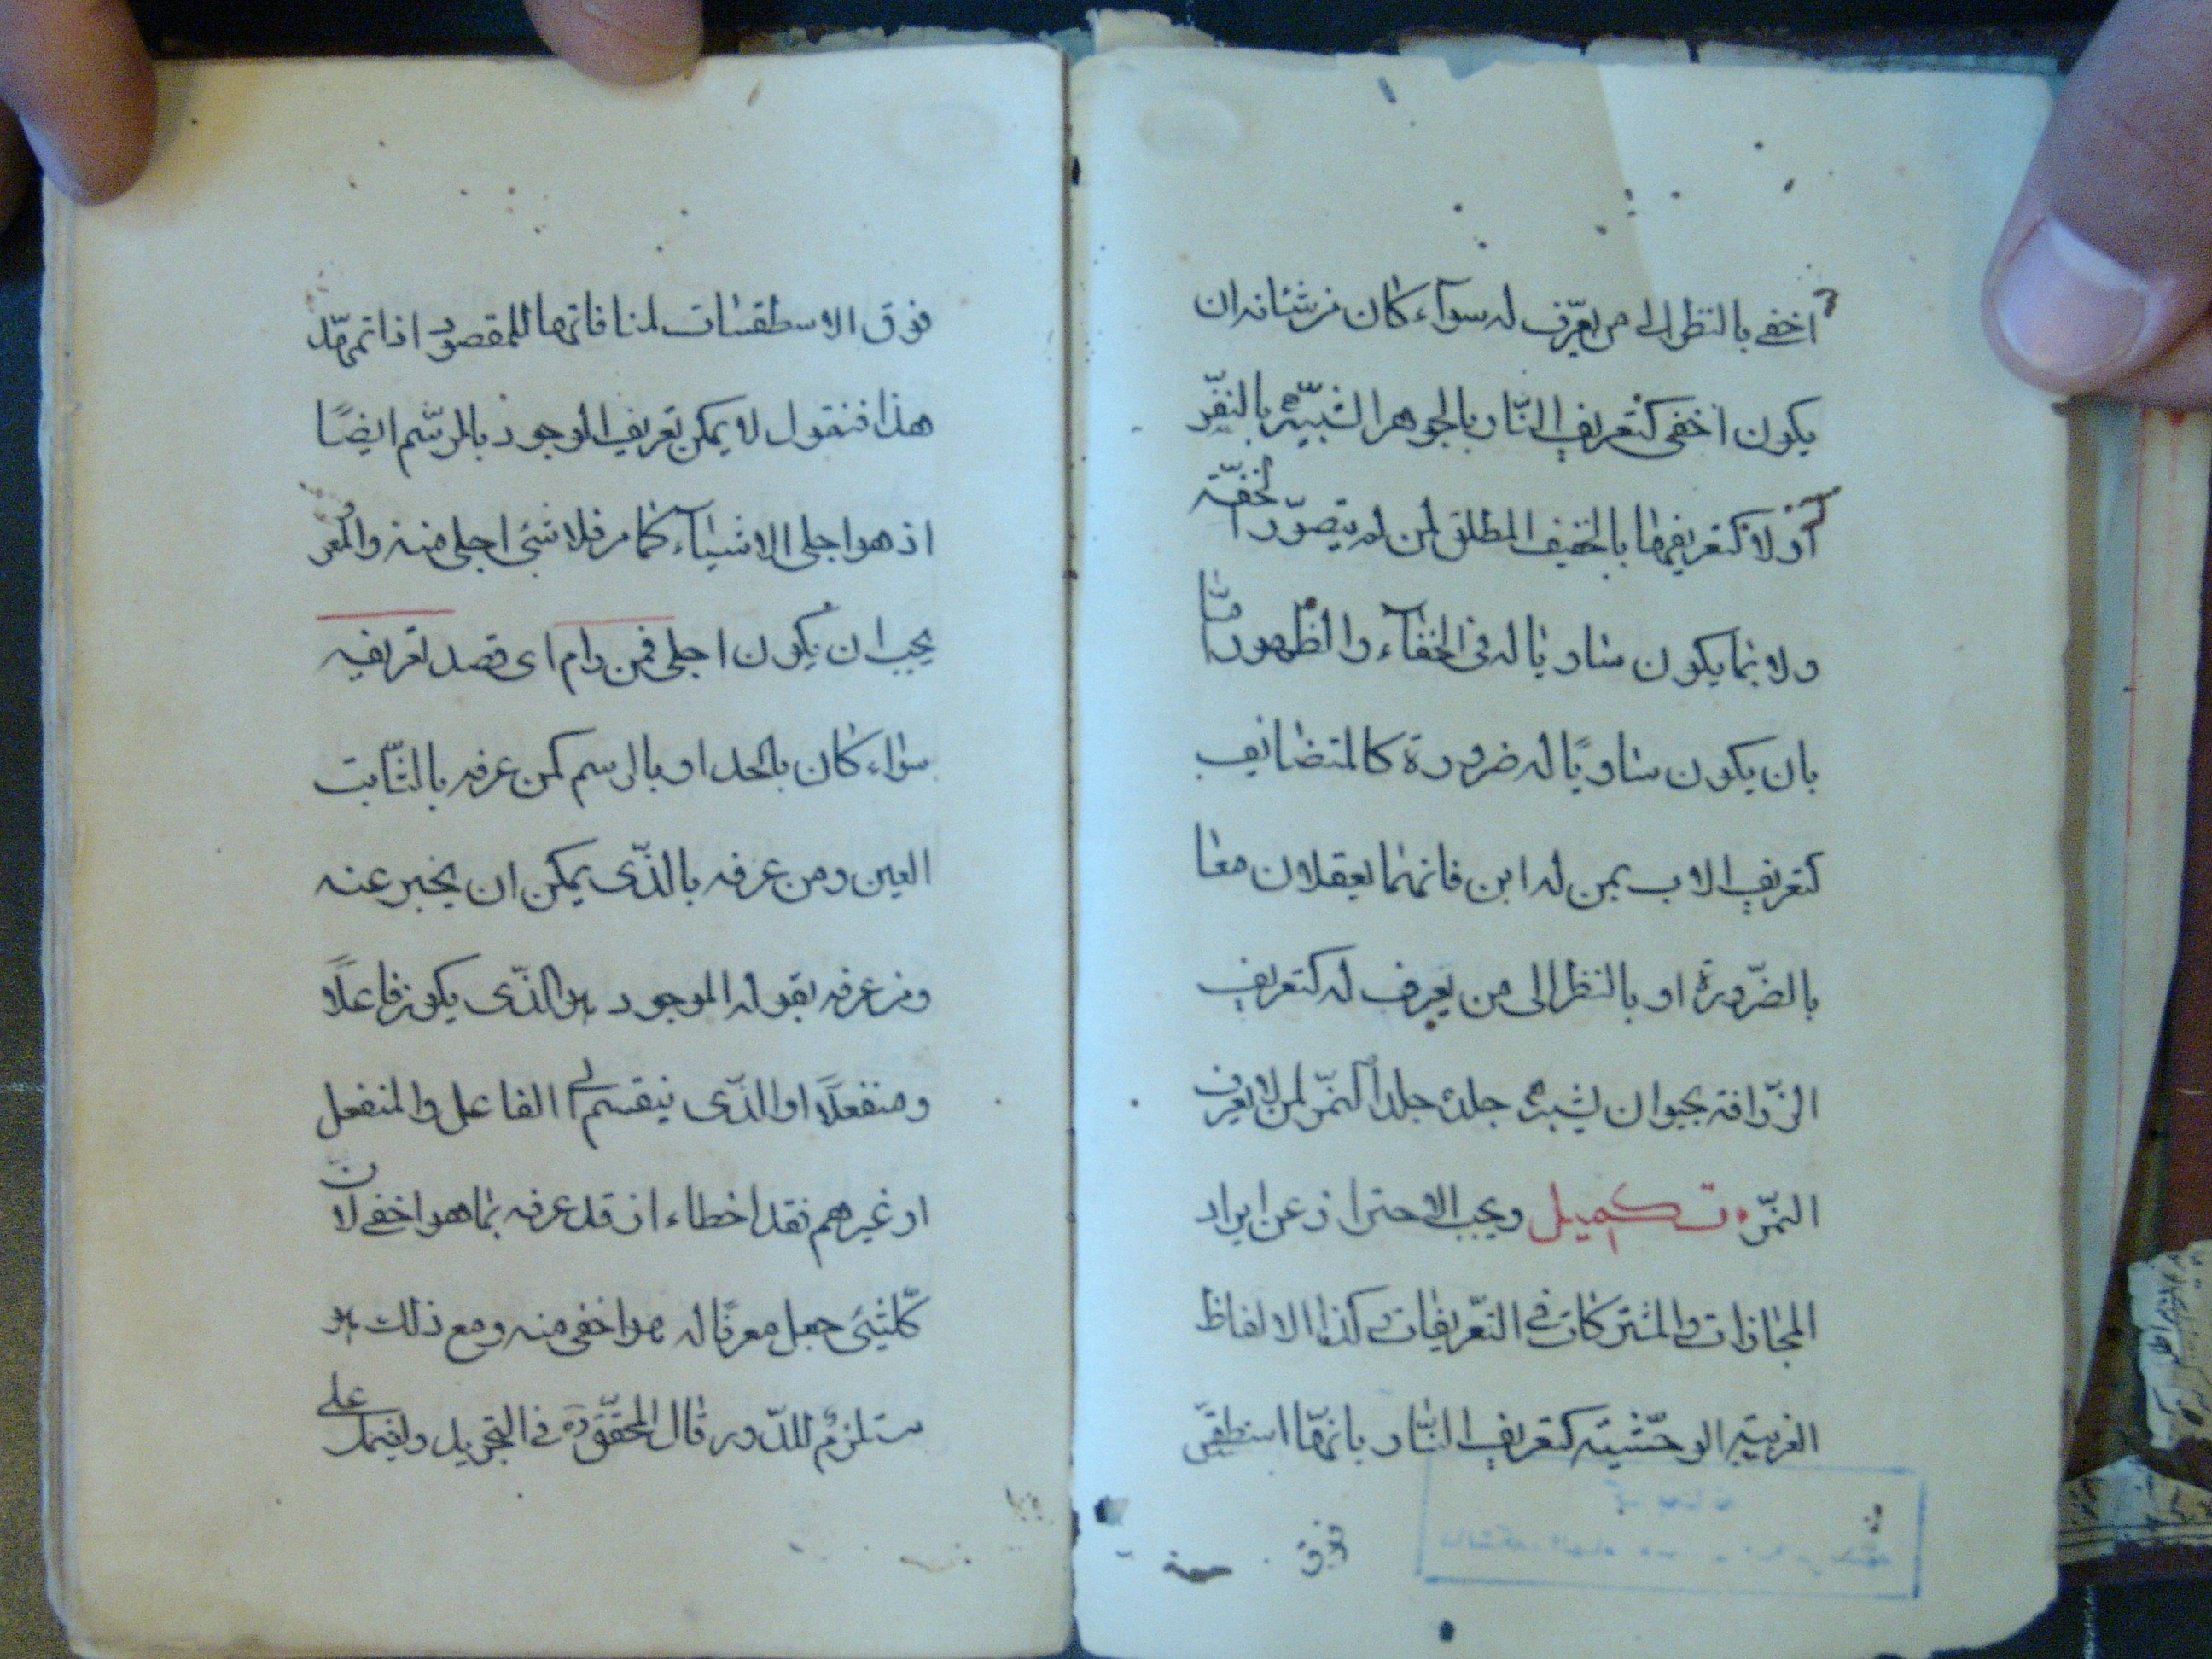 اخفى بالنظر الى من يعرّف له سوآء كان من شانه ان
يكون اخفى كتعريف النّار بالجوهر الشّبيه بالنفّس
او لا كتعريفها بالخفيف المطلق لمن لم يتصوّر الخفّة
ولا بما يكون مساويا له فى الخفآء والظهور امّا
بان يكون مساويًا له ضرورة كالمتضايف
كتعريف الاب بمن له ابن فانهما يعقلان معا
بالضّرورة او بالنظر الى من يعرف له كتعريف
الزّرافة بحيوان يشبه جلده جلد النمّر لمن لا يعرف
النمّر تكميل ويجب الاحتراز عن ايراد
المجازات والمشتركات فى التعّريفات وكذا الالفاظ
الغريبة الوحشّية كتعريف النّار بانهّا اسطقسّ
فوق
فوق الاسطقسات لمنافاتها للمقصود اذا تمهّد
هذا فنقول لا يمكن تعريف الوجود بالرسّم ايضًا
اذ هو اجلى الاشيآء كما مر فلا شئ اجلى منه والمعرف
يجب ان يكون اجلى فمن رام اى قصد تعريفه
سواء كان بالحد او بالرسم كمن عرفه بالثّابت
العين ومن عرفه بالذّى يمكن ان يخبر عنه
ومن عرفه بقوله الموجود هو الذّى يكون فاعلًا
ومنفعلًا او الذّى ينقسم الى الفاعل والمنفعل
او غيرهم فقد اخطاء اذ قد عرفه بما هو اخفى لان
كلّ شئ جعل معرفًا له هو اخفى منه ومع ذلك هو
مستلزم للدّور قال المحققّ ره فى التجريد وتحديدهما على